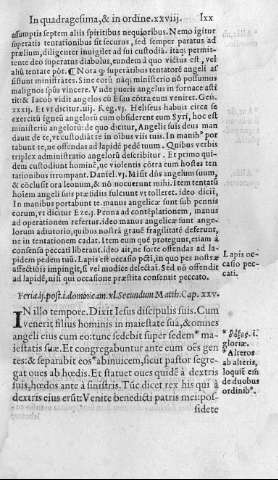 In quadragesima, & in ordine. xxviij. lxx
assumptis septem aliis spiritibus nequioribus. Nemo igitur
superatis tentationibus sit securus, sed semper paratus ad
prælium, diligenter inuigilet ad sui custodia. itaq; permit-
tente deo superatus diabolus, eundem à quo victus est, vel
aliũ tentare põt. ¶ Nota q superatis tentatiõib angeli
sistunt ministrãtes. Sine quorũ ministerio nõ possumus
malignos spũs vincere. Vnde pueris angelus in fornace asti
tit: & Iacob vidit angelos cũ Esau cõtra eum veniret. Gen.
xxxij. Et vt dicitur, iiij. Reg. vj. Heliseus habuit circa se
exercitũ igneũ angelorũ cum obsiderent eum Syri, hoc est
ministeriũ angelorũ: de quo dicitur, Angelis suis deus man
dauit de te, vt custodiãt te in oibus viis tuis. In manib' por
tabunt te, ne offendas ad lapidẽ pedẽ tuum. Quibus verbis
triplex administratio angelorũ describitur. Et primo qui-
dem custodiunt hominẽ, ne violentis cõtra eum hostes ten
tationibus irrumpant. Daniel. vj. Misit dñs angelum suum,
& oclusit ora leonum, & nõ nocuerunt mihi. Item tentatũ
hoiem angeli sunt parati in sulcum vt tolleret. ideo dicit,
In manibus portabunt te. manus angelicæ sunt sub pennis
eorum, vt dicitur Ezec. j. Prona ad contẽplationem, manus
ad operationem refertur. ideo manus angelicæ sunt ange-
lorum adiutorio, quibus nostrã graue fragilitatẽ deferunt,
ne in tentationem cadat. Item eum quẽ protegunt, etiam à
consensu peccati liberant. Ideo ait, ne forte offendas ad la-
pidem pedem tuũ. Lapis est occasio pcti, in quo pes nostræ
affectiõis impingit, si vel modice delectat. Sed nõ offendit
ad lapidẽ, nisi qui occasione præstita consensit peccato.
Lapis oc-
casio pec-
cati.
Feria. ij. post. i. domicæ. an. xl. Secundum Matth. Cap. xxv.
IN illo tempore. Dixit Iesus discipulis suis. Cum
venerit filius hominis in maiestate sua, & omnes
angeli eius cum eo: tunc sedebit super sedem* ma-
iestatis suæ. Et congregabuntur ante eum oẽs gen
tes: & separabit eos* abinuicem, sicut pastor segre-
gat oues ab hœdis. Et statuet oues quidẽ à dextris
suis, hœdos ante à sinistris. Tũc dicet rex his qui à
dextris eius erũt: Venite benedicti patris mei: pos-
sidete
gloriæ.
* Alteros
ab alteris,
de duobus
ordinib'.